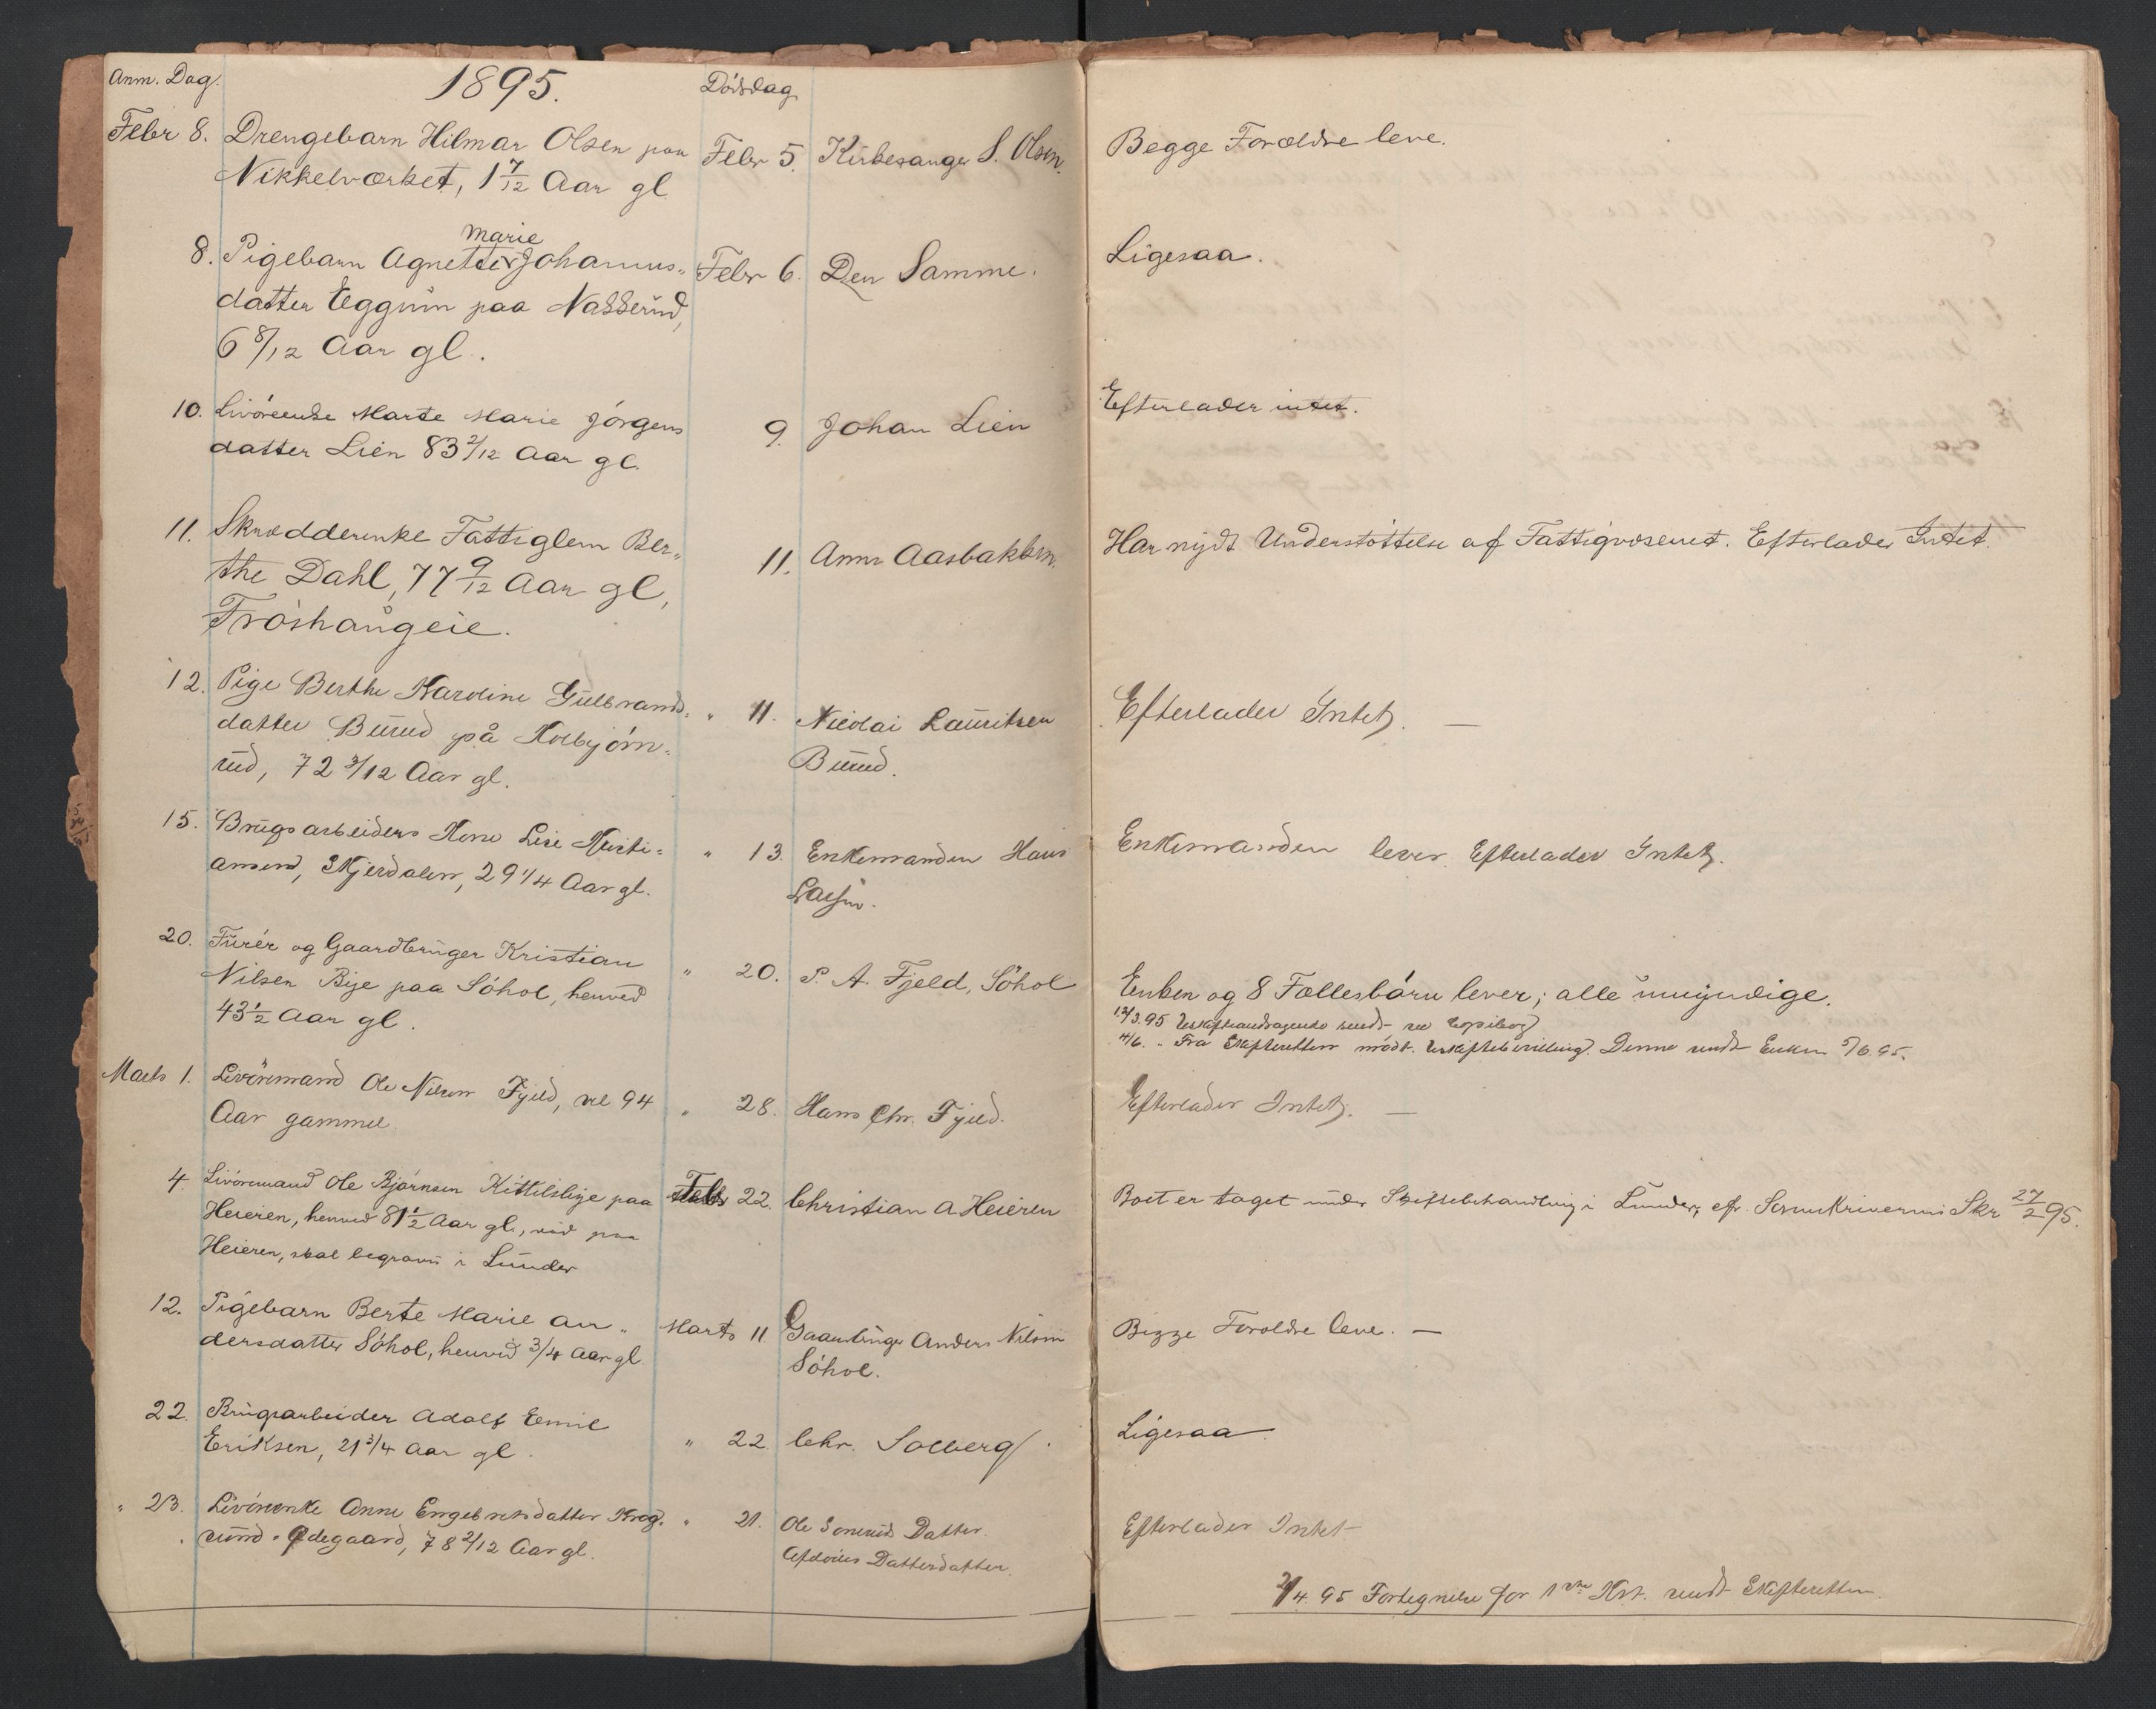 Anm. Dag. 1895. Dödsdag
Febr 8. Drengebarn Hilmar Olsen paa Febr 5. Kirkesanger S. Olsen. Begge Forældre leve.
Nikkelværket, 1 7/12 Aar gl
Marie
8. Pigebarn Agnethe Johannes- Febr 6. Den Samme. Ligesaa.
datter Eggum paa Nakkerud,
6 8/12 Aar gl.
10. Livöreenke Marte Marie Jörgens 9. Johan Lien Efterlader intet.
datter Lien 83 2/12 Aar gl.
11. Skrædderenke Fattiglem Ber- 11. Anne Aasbakken. Har nydt Understöttelse af Fattigvæsenet. Efterlader Intet.
the Dahl, 77 9/12 Aar gl,
Fröshaugeie.
12. Pige Berthe Karoline Gulbrands- " 11. Nicolai Lauritsen Efterlader Intet. —
datter Burud på Kolbjörn- Burud.
rud, 72 3/12 Aar gl.
15. Brugsarbeiders Kone Lise Kristi- " 13. Enkemanden Hans Enkemanden lever. Efterlader Intet.
ansen, Skjerdalen, 29 1/4 Aar gl.
20. Furér og Gaardbruger Kristian " 20. P. A. Fjeld, Söhol Enken og 8 Fællesbörn lever; alle umyndige.
Nilsen Bye paa Söhol, henved 12/3.95 Uskifteandragende sendt, se Copibog
43 1/2 Aar gl. 4/6. " Fra Skifteretten modt. Uskiftebevilling. Denne sendt Enken 5/6.95.
Marts 1. Livöremand Ole Nilsen Fjeld, vel 94 " 28. Hans Chr. Fjeld. Efterlader Intet. —
Aar gammel.
4. Livöremand Ole Björnsen Kittilsbye paa Febr 22. Christian A Heieren Boet er taget under Skiftebehandling i Lunder, efr. Sorenskriverens Skr 27/2 95.
Heieren, henved 81 1/2 Aar gl., död paa
Heieren, skal begraves i Lunder
12. Pigebarn Berte Marie An- Marts 11 Gaardbruger Anders Nilsen Begge Forældre leve. —
dersdatter Söhol, henved 3/4 Aar gl. Söhol.
22. Brugsarbeider Adolf Emil " 22. Chr. Solberg. Ligesaa
Eriksen, 21 3/4 Aar gl.
" 23. Livöreenke Anne Engebretsdatter Krog- " 21. Ole Datter. Efterlader Intet
rund - Ödegaard, 78 2/12 Aar gl. Afdödes Datterdatter.
2/4.95 Fortegnelse for 1ste Kvt. sendt Skifteretten